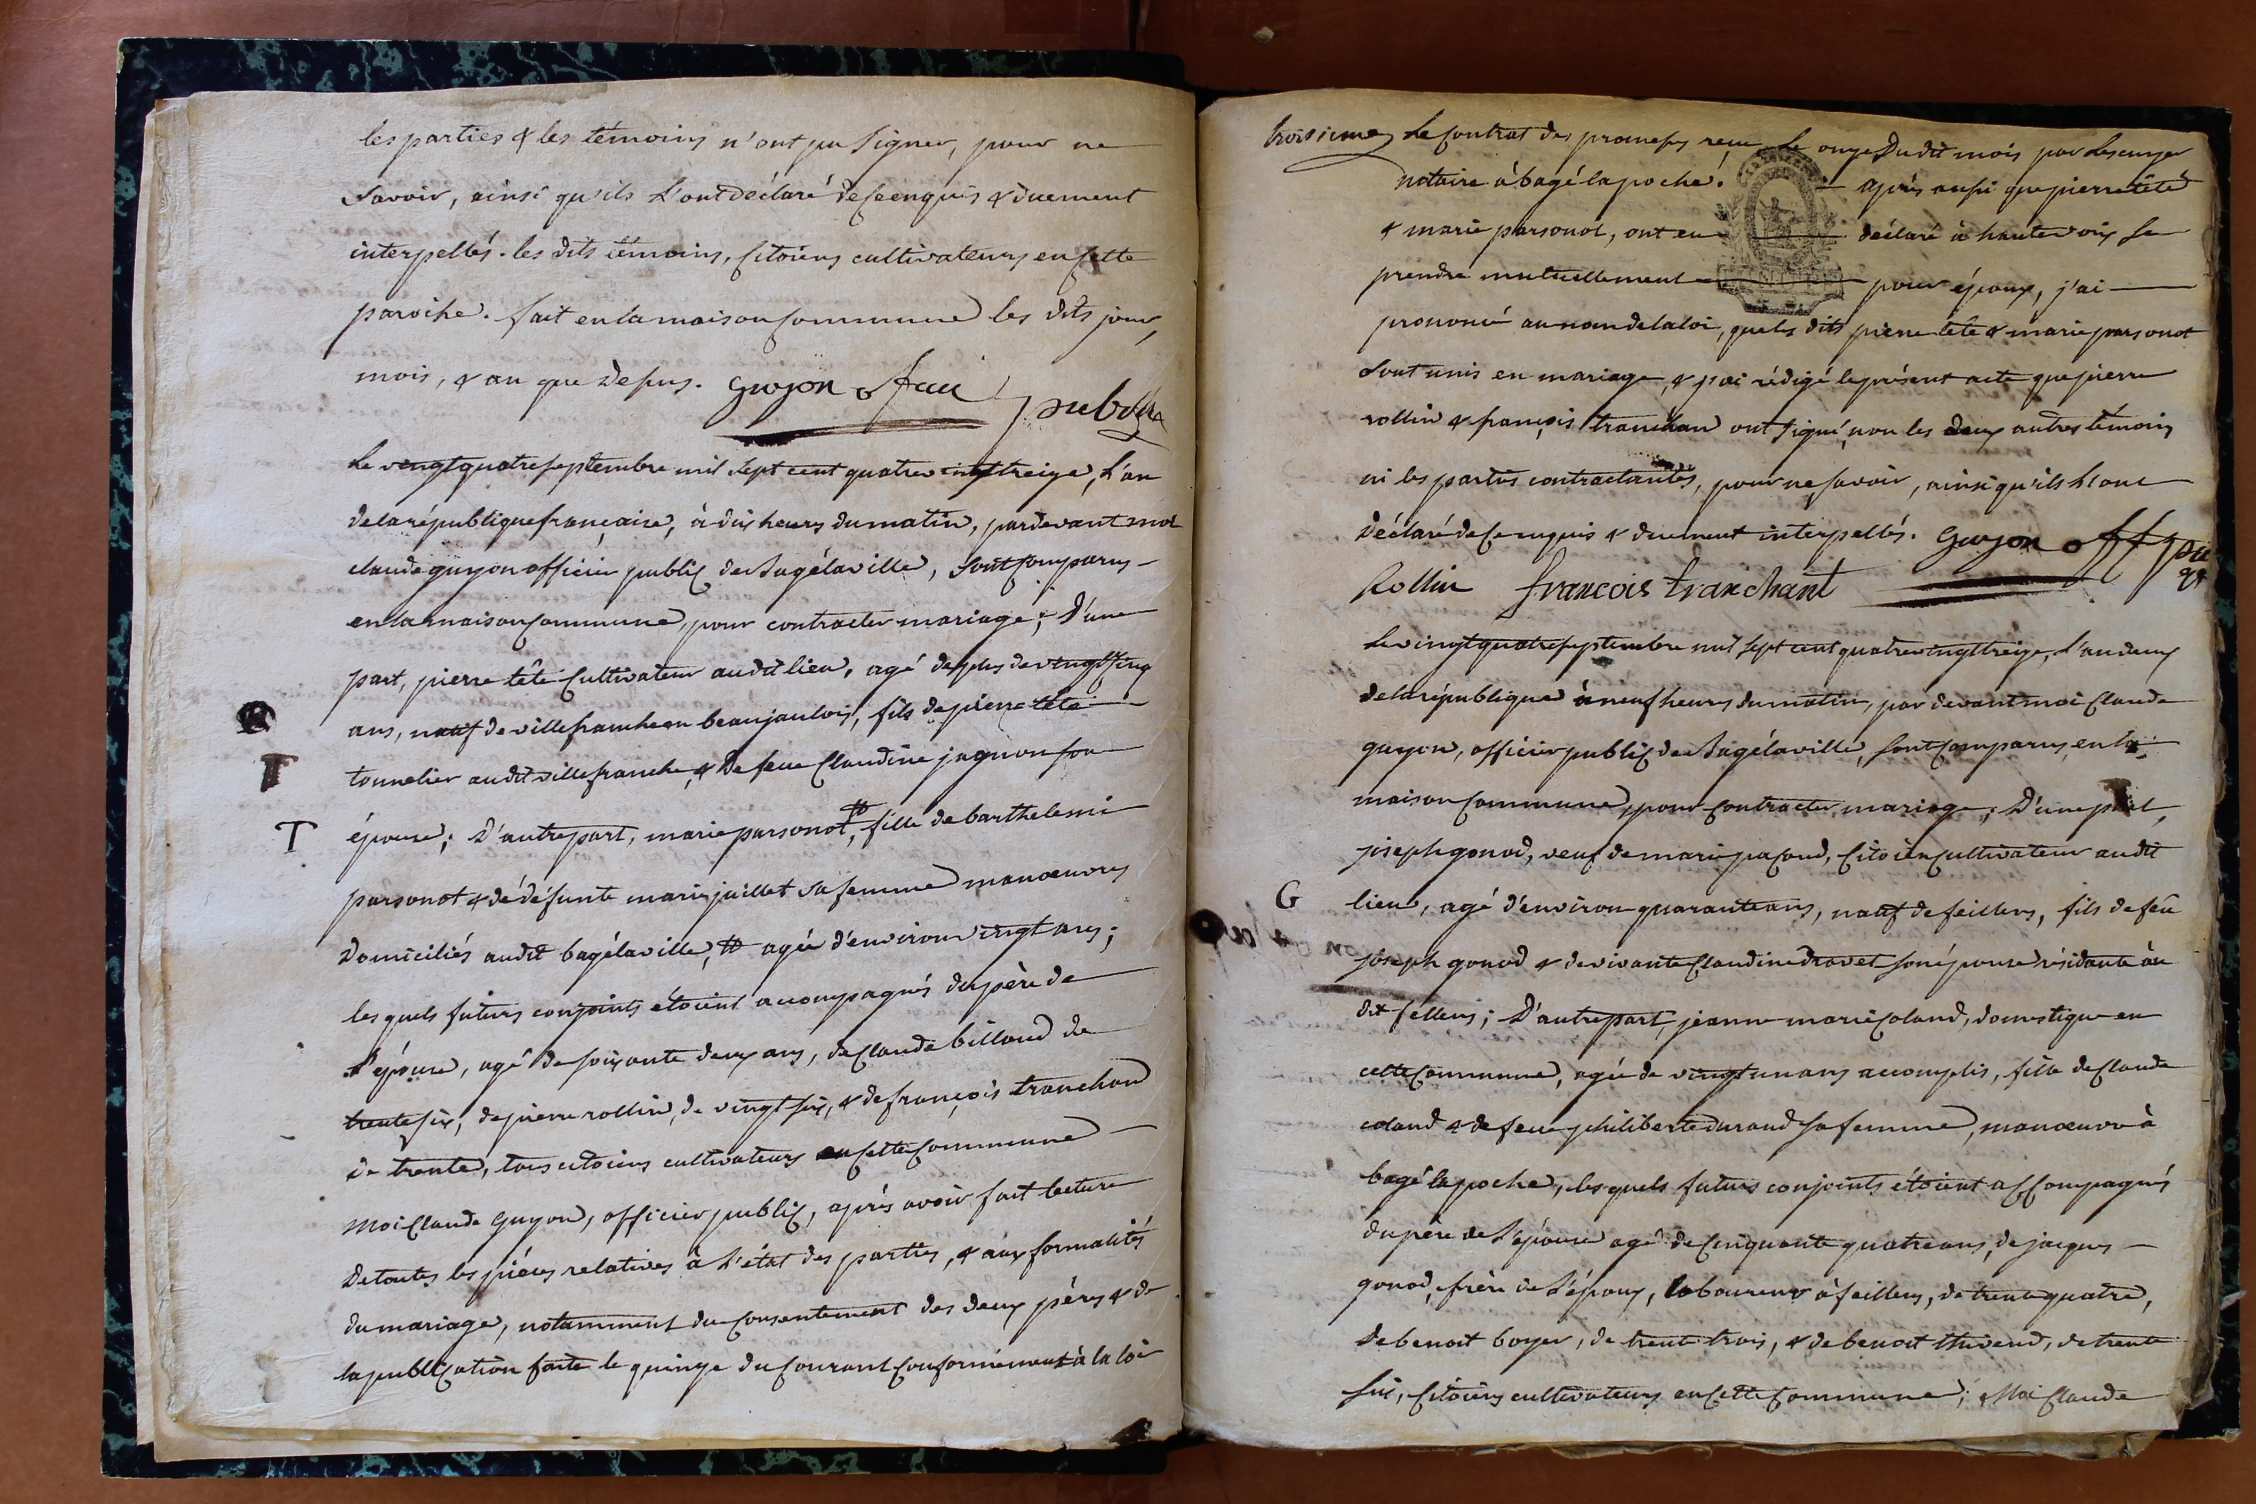 les parties & les témoins n'ont pu signer, pour ne
savoir, ainsi qu'ils l'ont déclaré de ce enquis & duement
interpellés. les dits témoins, citoiens cultivateurs en cette
paroiche. fait en la maison commune les dits jour,
mois, & an que depus. Guyon off
Le vingt quatre septembre mil sept cent quatre vingt treize, l'an
de la république française, à dix heures du matin, pardevant moi
claude guyon officier public de Bagélaville, sont comparus
en la maison commune, pour contracter mariage; D'une
part, pierre tête cultivateur audit lieu, agé de plus de vingt cinq
ans, natif de villefranche en beaujaulois, fils de pierre tête
T
tonnelier audit villefranche, & de feue Claudine jagnon son
T
épouse; D'autre part, marie parsonot, fille de barthelemi
parsonot & de défunte marie juillet sa femme manoeuvres
Domiciliés audit bagélaville, agée d'environ vingt ans;
les quels futurs conjoints étoient accompagnés du père de
l'épouse, agé de soixante deux ans, de Claude billoud de
trente six, de pierre rollin, de vingt six, & de françois tranchan
de trente, tous citoiens cultivateurs en cette commune
Moi Claude Guyon, officier public, après avoir fait lecture
de toutes les pièces relatives à l'état des parties, & aux formalités
du mariage, notamment du consentement des deux pères & de
la publication faite le quinze du courant conformément à la loi
troisieme, Le contrat des promesses reçu le onze Du dit mois par
notaire à bagé lapoche. après aussi que pierre tête
& marie parsonot, ont eu déclaré à haute voix se
prendre mutuellement pour époux, j'ai
prononcé au nom de la loi, que les dits pierre tête & marie parsonot
sont unis en mariage, & j'ai rédigé le présent acte que pierre
rollin & françois tranchan ont signé, non les deux autres témoins
ni les parties contractantes, pour ne savoir, ainsi qu'ils l'ont
Déclaré de ce enquis & duement interpellés. Guyon off
Rollin francois tranchant
Le vingt quatre septembre mil sept cent quatre vingt treize, l'an deux
de la république à neuf heures du matin, par devant moi Claude
guyon, officier public de Bagélaville, sont comparus, en la
maison commune, pour contracter mariage; D'une part,
joseph gonod, veuf de marie pacoud, citoien cultivateur audit
G
lieu, agé d'environ quarante ans, natif de feillens, fils de feu
joseph gonod & de vivante Claudine dravet son épouse résidante au
dit fellens; D'autre part, jeanne marie coland, domestique en
cette commune, agée de vingt un ans accomplis, fille de Claude
coland & de feue philiberte durand sa femme, manoeuvre à
bagé la poche, les quels futurs conjoints étoient accompagnés
du père de l'épouse agé de cinquante quatre ans, de jacques
gonod, frère de l'époux, laboureur à feillens, de trente quatre,
de benoit boyer, de trente trois, & de benoit thivend, de trente
six, citoiens cultivateurs en cette commune; & Moi Claude